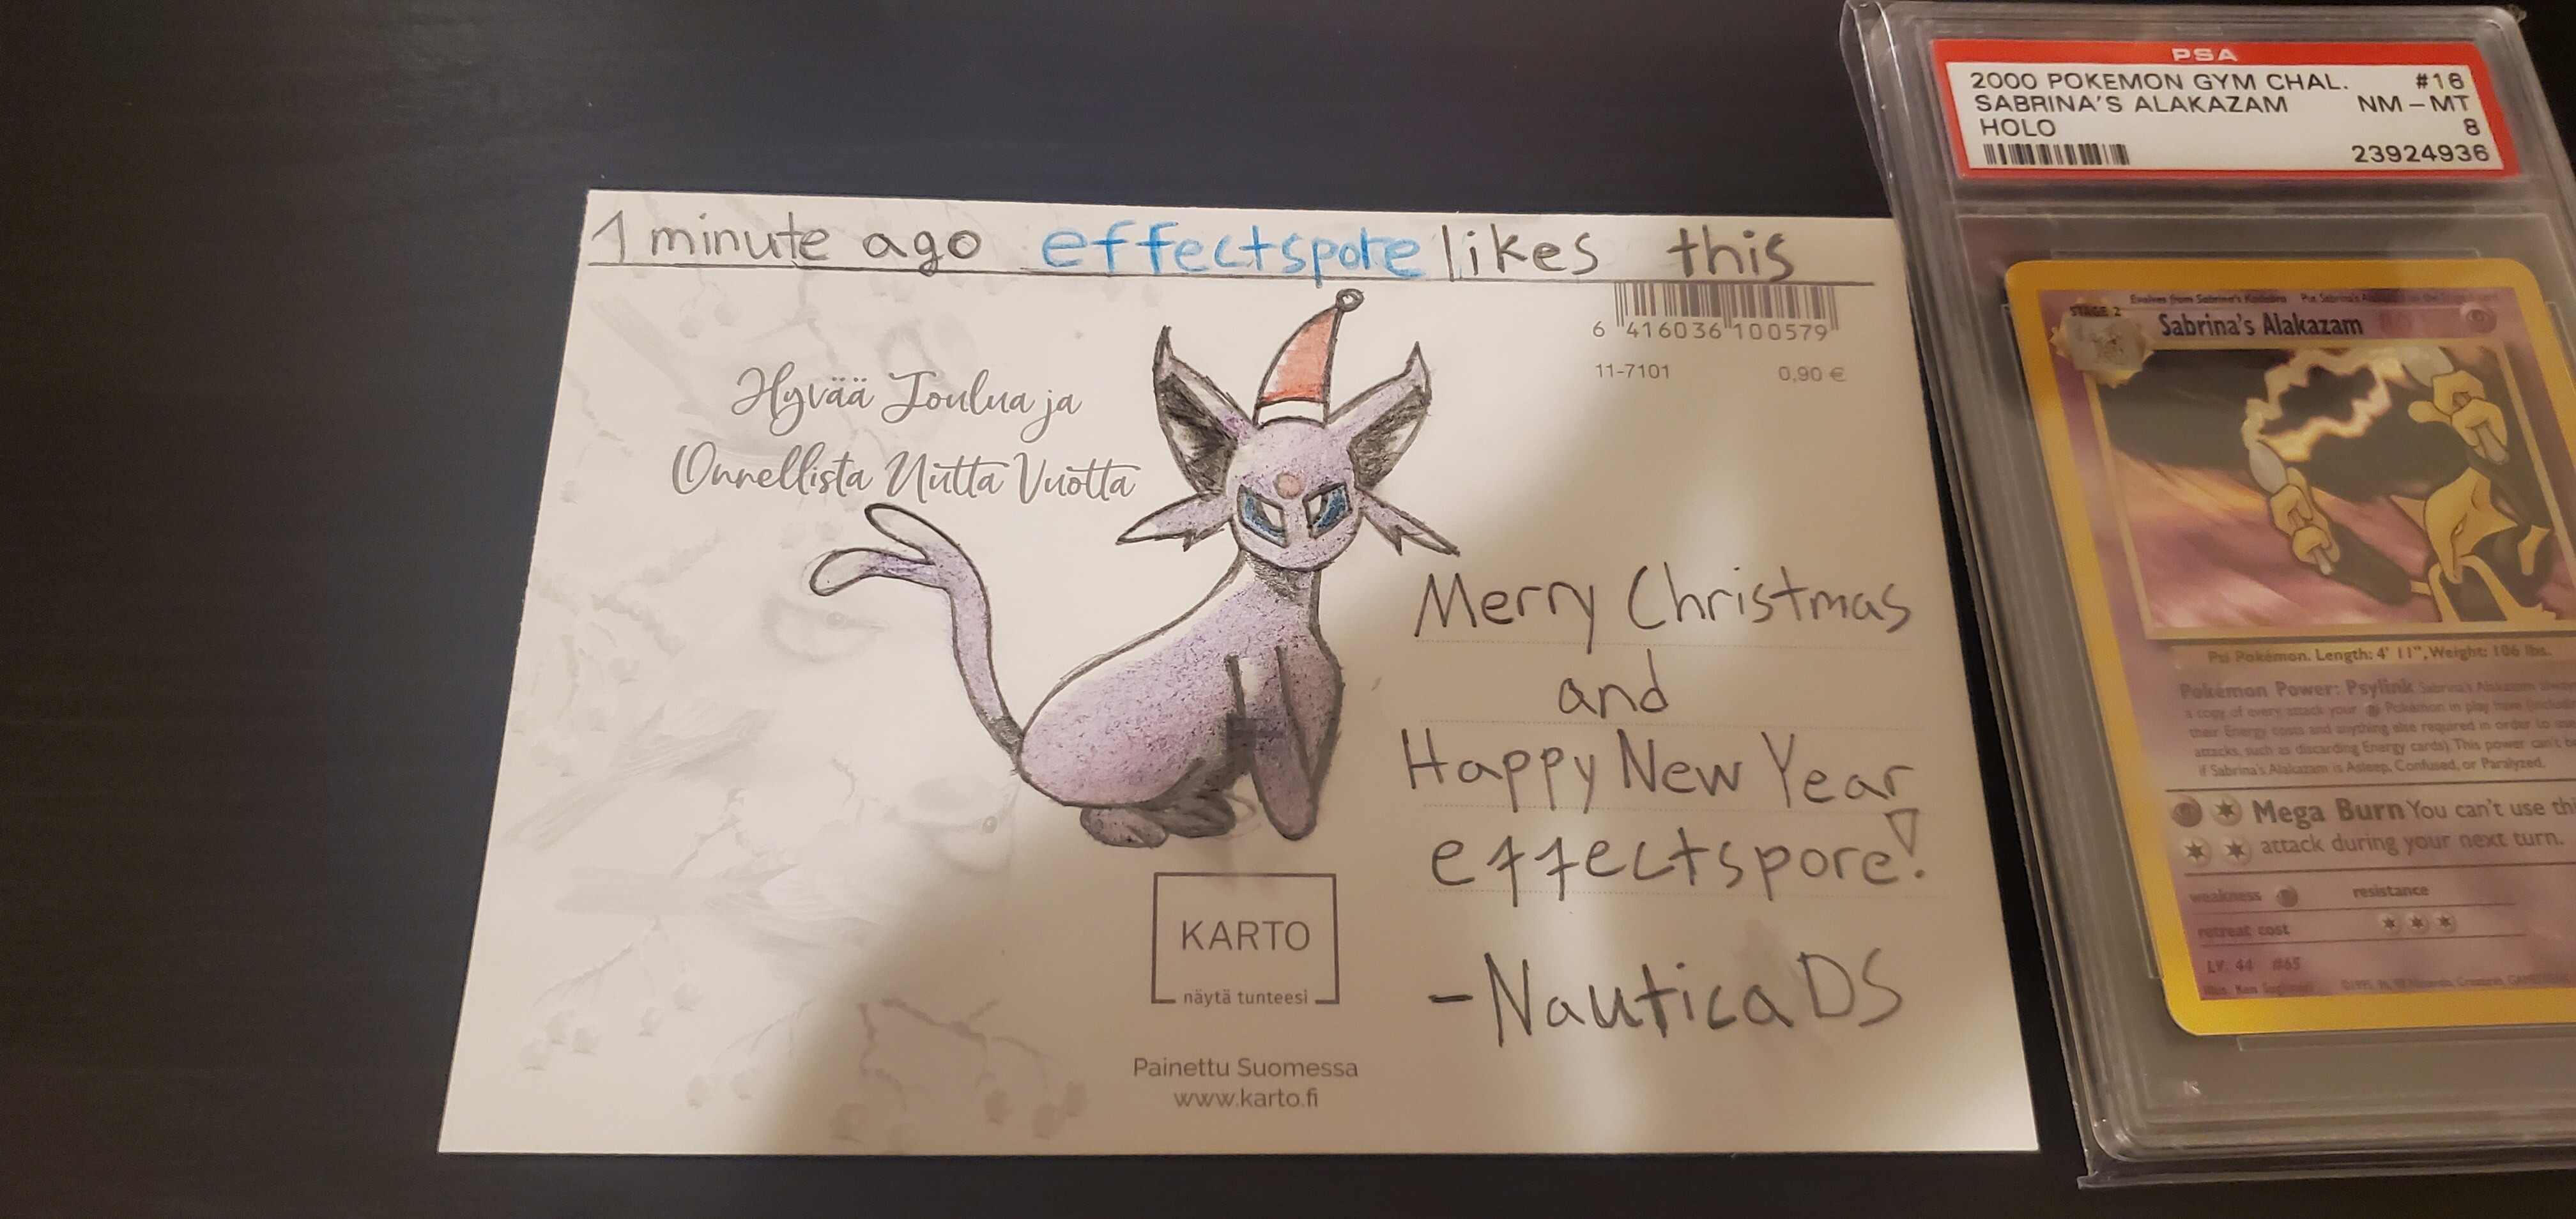 1 minute ago effectspore likes this
6 416036 100579
11-7101 0,90 €
Hyvää Joulua ja
Onnellista Uutta Vuotta
Merry Christmas
and
Happy New Year
effectspore!
-NauticaDS
KARTO
näytä tunteesi
Painettu Suomessa
www.karto.fi
PSA
2000 POKEMON GYM CHAL. #16
SABRINA'S ALAKAZAM NM - MT
HOLO 8
23924936
Evolves from Sabrina's Kadabra Put Sabrina's
STAGE 2
Sabrina's Alakazam
Psi Pokémon. Length: 4' 11", Weight: 106 lbs.
Pokémon Power: Psylink Sabrina's Alakazam
a copy of every attack your Pokémon in play
their Energy costs and anything else required in order to
attacks, such as discarding Energy cards). This power can't
if Sabrina's Alakazam is Asleep, Confused, or Paralyzed.
Mega Burn You can't use
attack during your next turn.
weakness resistance
retreat cost
LV. 44 #65